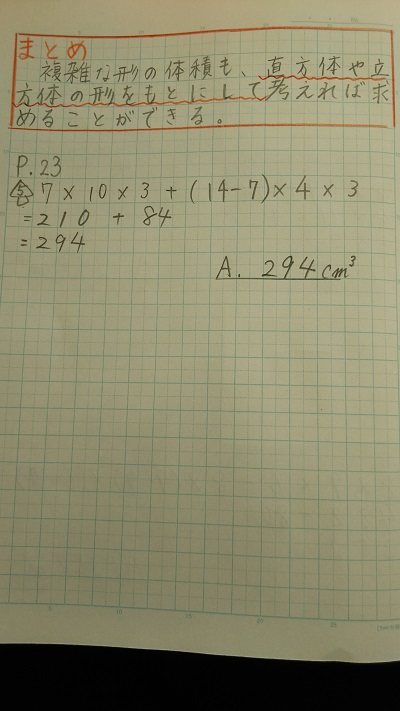 まとめ
複雑な形の体積も、直方体や立
方体の形をもとにして考えれば求
めることができる。
P.23
7×10×3+(14-7)×4×3
=210 + 84
=294
A. 294cm³